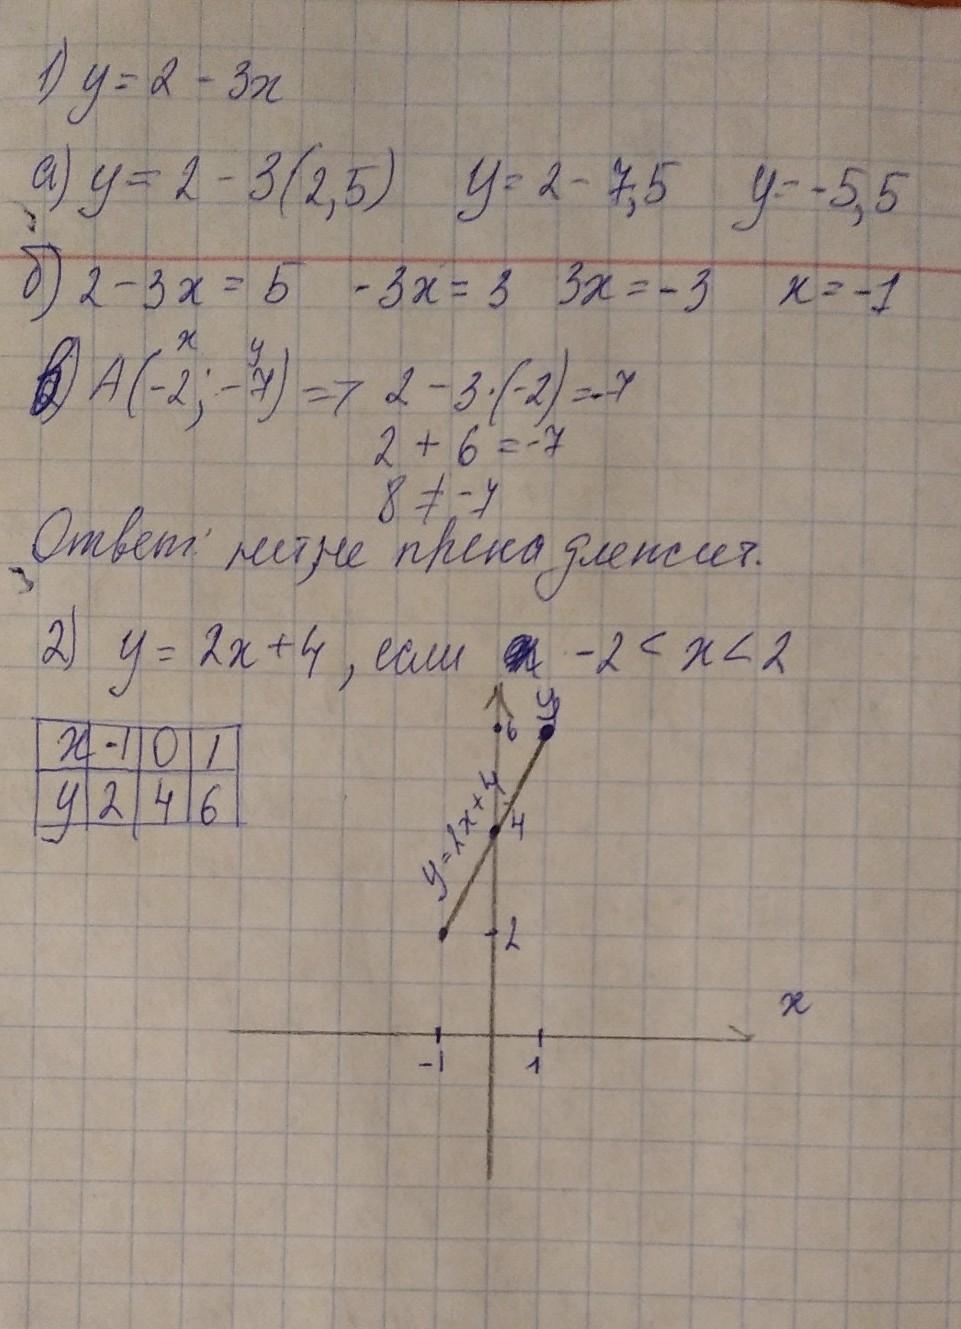 1) y = 2 - 3x
а) y = 2 - 3(2,5) y = 2 - 7,5 y = -5,5
б) 2 - 3x = 5 -3x = 3 3x = -3 x = -1
x y
в) A(-2; -7) => 2 - 3·(-2) = -7
2 + 6 = -7
8 ≠ -7
Ответ: нет, не пренадлежит.
2) y = 2x + 4, если -2 < x < 2
x -1 0 1
y 2 4 6
y
6
y = 2x + 4
4
2
x
-1 1